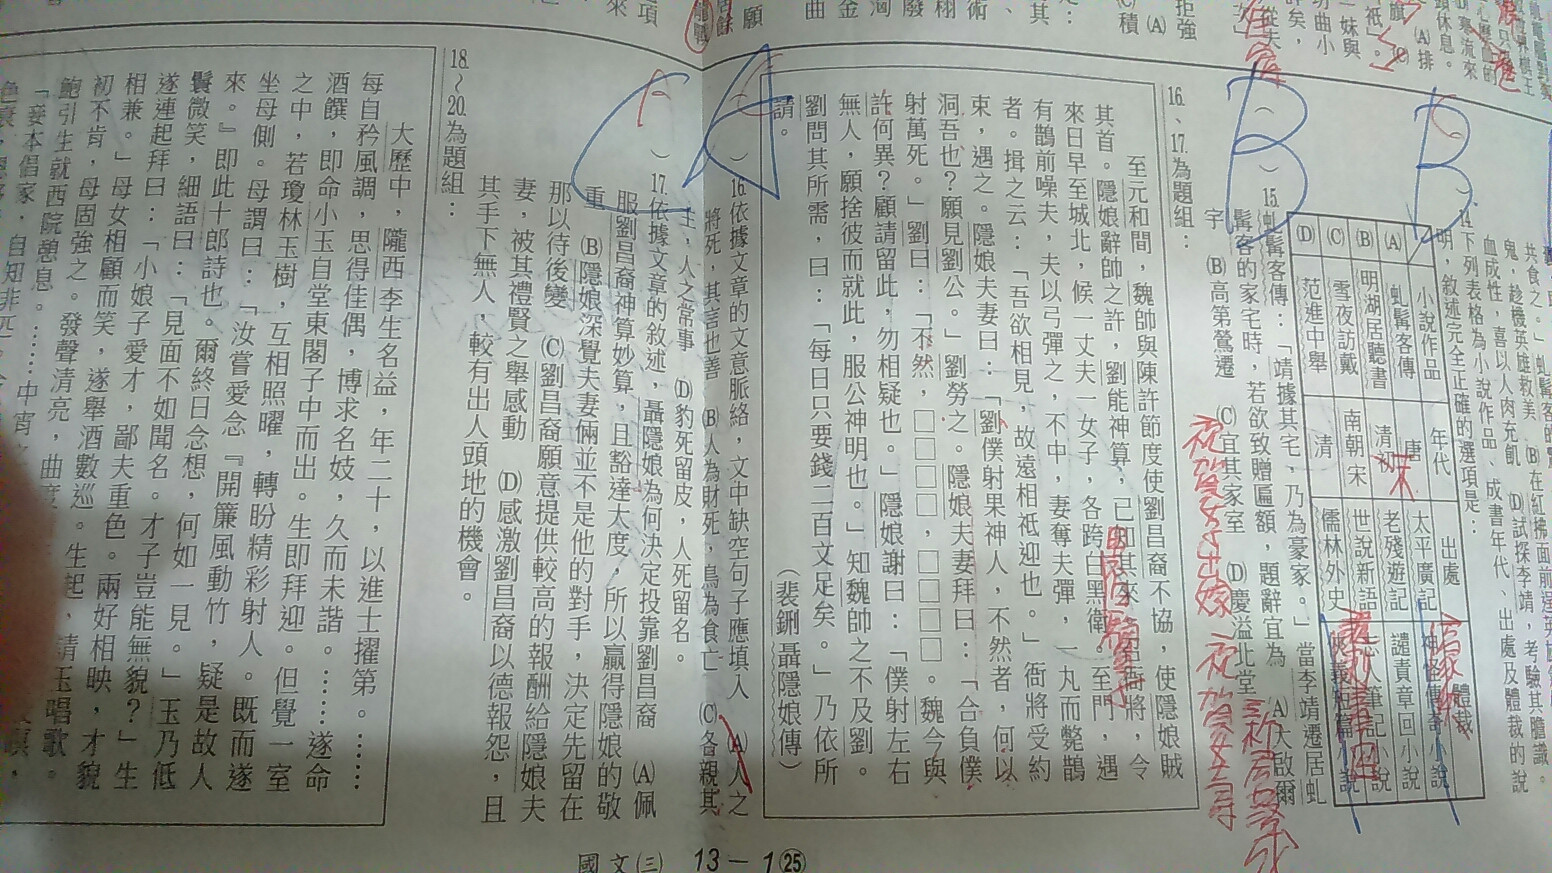 14.下列表格為小說作品、成書年代、出處及體裁的說
明,敘述完全正確的選項是:
小說作品 年代 出處 體裁
(A) 虬髯客傳 唐 太平廣記
(B) 明湖居聽書 清 老殘遊記 譴責章回小說
(C) 雪夜訪戴 南朝宋 世說新語
(D) 范進中舉 清 儒林外史
B
15.虬髯客傳:「靖據其宅,乃為豪家。」當李靖遷居虬
髯客的家宅時,若欲致贈匾額,題辭宜為 (A)大啟爾
宇 (B)高第鶯遷 (C)宜其家室 (D)慶溢北堂
B
16.、17.為題組:
至元和間,魏帥與陳許節度使劉昌裔不協,使隱娘賊
其首。隱娘辭帥之許,劉能神算,已知其來,召衙將,令
來日早至城北,候一丈夫一女子,各跨白黑衛至門,遇
有鵲前噪夫,夫以弓彈之,不中,妻奪夫彈,一丸而斃鵲
者。揖之云:「吾欲相見,故遠相祗迎也。」衙將受約
束,遇之。隱娘夫妻曰:「劉僕射果神人,不然者,何以
洞吾也?願見劉公。」劉勞之。隱娘夫妻拜曰:「合負僕
射萬死。」劉曰:「不然,□□□□,□□□□。魏今與
許何異?顧請留此,勿相疑也。」隱娘謝曰:「僕射左右
無人,願捨彼而就此,服公神明也。」知魏帥之不及劉。
劉問其所需,曰:「每日只要錢二百文足矣。」乃依所
請。
(裴鉶聶隱娘傳)
A
16.依據文章的文意脈絡,文中缺空句子應填入 (A)人之
將死,其言也善 (B)人為財死,鳥為食亡 (C)各親其
主,人之常事 (D)豹死留皮,人死留名。
C
17.依據文章的敘述,聶隱娘為何決定投靠劉昌裔 (A)佩
服劉昌裔神算妙算,且豁達大度,所以贏得隱娘的敬
重 (B)隱娘深覺夫妻倆並不是他的對手,決定先留在
那以待後變 (C)劉昌裔願意提供較高的報酬給隱娘夫
妻,被其禮賢之舉感動 (D)感激劉昌裔以德報怨,且
其手下無人,較有出人頭地的機會。
18.~20.為題組:
大歷中,隴西李生名益,年二十,以進士擢第。……
每自矜風調,思得佳偶,博求名妓,久而未諧。……遂命
酒饌,即命小玉自堂東閣子中而出。生即拜迎。但覺一室
之中,若瓊林玉樹,互相照曜,轉盼精彩射人。既而遂
坐母側。母謂曰:「汝嘗愛念『開簾風動竹,疑是故人
來。』即此十郎詩也。爾終日念想,何如一見。」玉乃低
鬟微笑,細語曰:「見面不如聞名。才子豈能無貌?」生
遂連起拜曰:「小娘子愛才,鄙夫重色。兩好相映,才貌
相兼。」母女相顧而笑,遂舉酒數巡。生起,請玉唱歌。
初不肯,母固強之。發聲清亮,曲度
鮑引生就西院憩息。……中宵之
「妾本倡家,自知非
國文(三) 13-1㉕